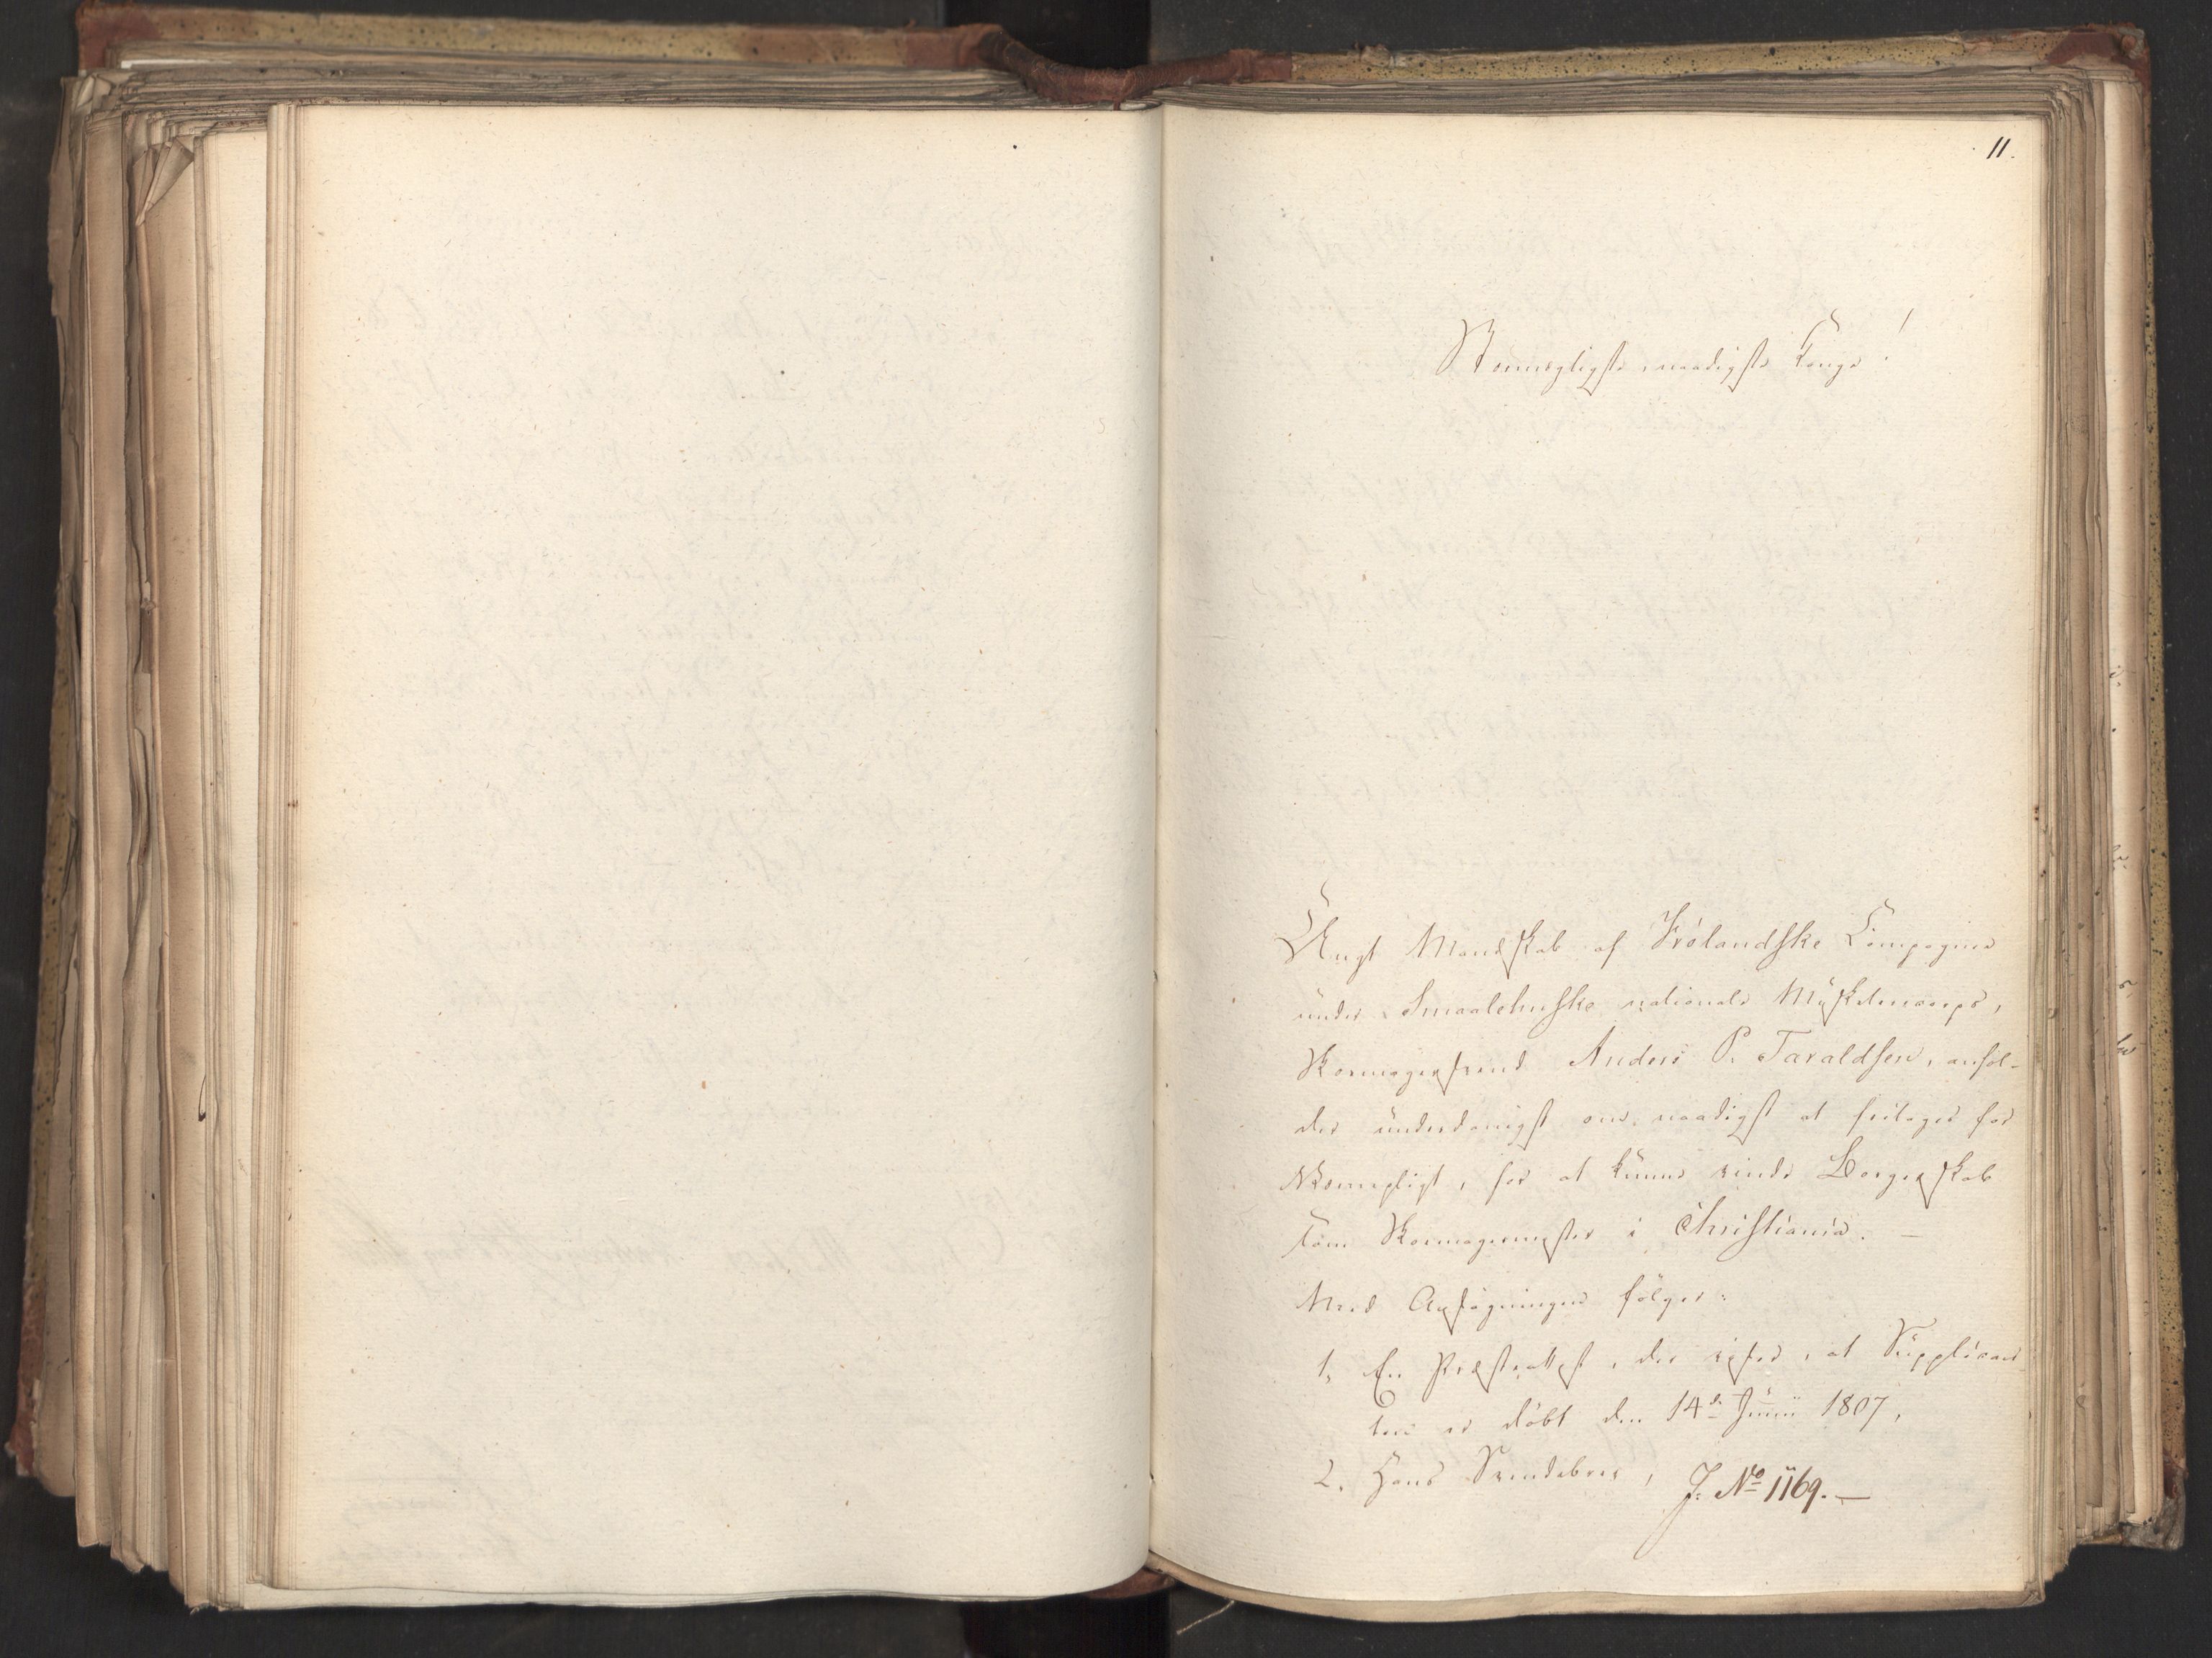 11.
Stormægtigste, naadigste Konge!
Ungt Mandskab af Frölandske Compagnie
under Smaalehnske nationale Musketeercorps,
Skomagersvend Anders P. Taraldsen, ansø-
der underdanigst om, naadigst at fritages for
Værnepligt, for at kunne vinde Borgerskab
som Skomagermester i Christiania. —
Med Ansøgningen følger:
1, En Præsteattest, der viser, at Supplican-
ten er døbt den 14de Junii 1807,
2. Hans Svendebrev,
J: No 1169. —